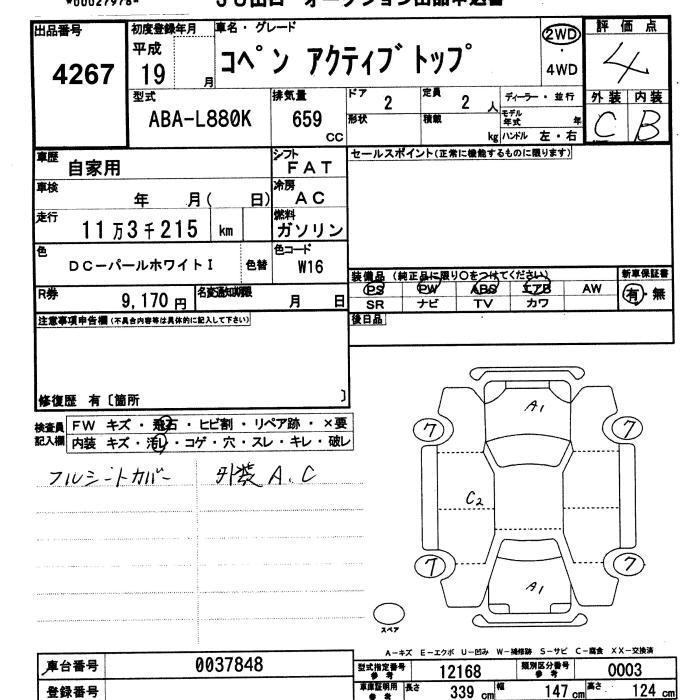 *00027978-
JU山口 オークション出品申込書
出品番号 初度登録年月 車名・グレード 2WD 評価点
4267 平成 19 月 コペン アクティブトップ 4WD 4
型式 排気量 ドア 2 定員 2 人 ディーラー・並行 外装 内装
ABA-L880K 659 CC 形状 積載 kg モデル年式 年 C B
ハンドル 左・右
車歴 自家用 シフト FAT セールスポイント(正常に機能するものに限ります)
車検 年 月( 日) 冷房 AC
走行 11万3千215 km 燃料 ガソリン
色 DC-パールホワイトI 色替 色コード W16
装備品 (純正品に限り〇をつけてください) 新車保証書
PS PW ABS エアB AW 有・無
SR ナビ TV カワ
R券 9,170円 名変通知期限 月 日
後日品
注意事項申告欄(不具合内容等は具体的に記入して下さい)
修復歴 有〔箇所 〕
検査員記入欄 FW キズ・飛石・ヒビ割・リペア跡・×要
内装 キズ・汚レ・コゲ・穴・スレ・キレ・破レ
フルシートカバー 外装 A、C
A1
7 7
C2
7 7
A1
スペア
A-キズ E-エクボ U-凹み W-補修跡 S-サビ C-腐食 XX-交換済
車台番号 0037848 型式指定番号 参考 12168 類別区分番号 参考 0003
登録番号 車庫証明用 参考 長さ 339 cm 幅 147 cm 高さ 124 cm